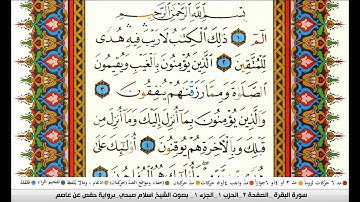 بِسْمِ ٱللَّهِ ٱلرَّحْمَٰنِ ٱلرَّحِيمِ
الٓمٓ ١ ذَٰلِكَ ٱلْكِتَٰبُ لَا رَيْبَ ۛ فِيهِ ۛ هُدًى
لِّلْمُتَّقِينَ ٢ ٱلَّذِينَ يُؤْمِنُونَ بِٱلْغَيْبِ وَيُقِيمُونَ
ٱلصَّلَوٰةَ وَمِمَّا رَزَقْنَٰهُمْ يُنفِقُونَ ٣
وَٱلَّذِينَ يُؤْمِنُونَ بِمَآ أُنزِلَ إِلَيْكَ وَمَآ أُنزِلَ مِن
قَبْلِكَ وَبِٱلْءَاخِرَةِ هُمْ يُوقِنُونَ ٤ أُو۟لَٰٓئِكَ عَلَىٰ
سورة البقرة . الصفحة ٢ . الحزب ١ . الجزء ١ . بصوت الشيخ اسلام صبحي . برواية حفص عن عاصم